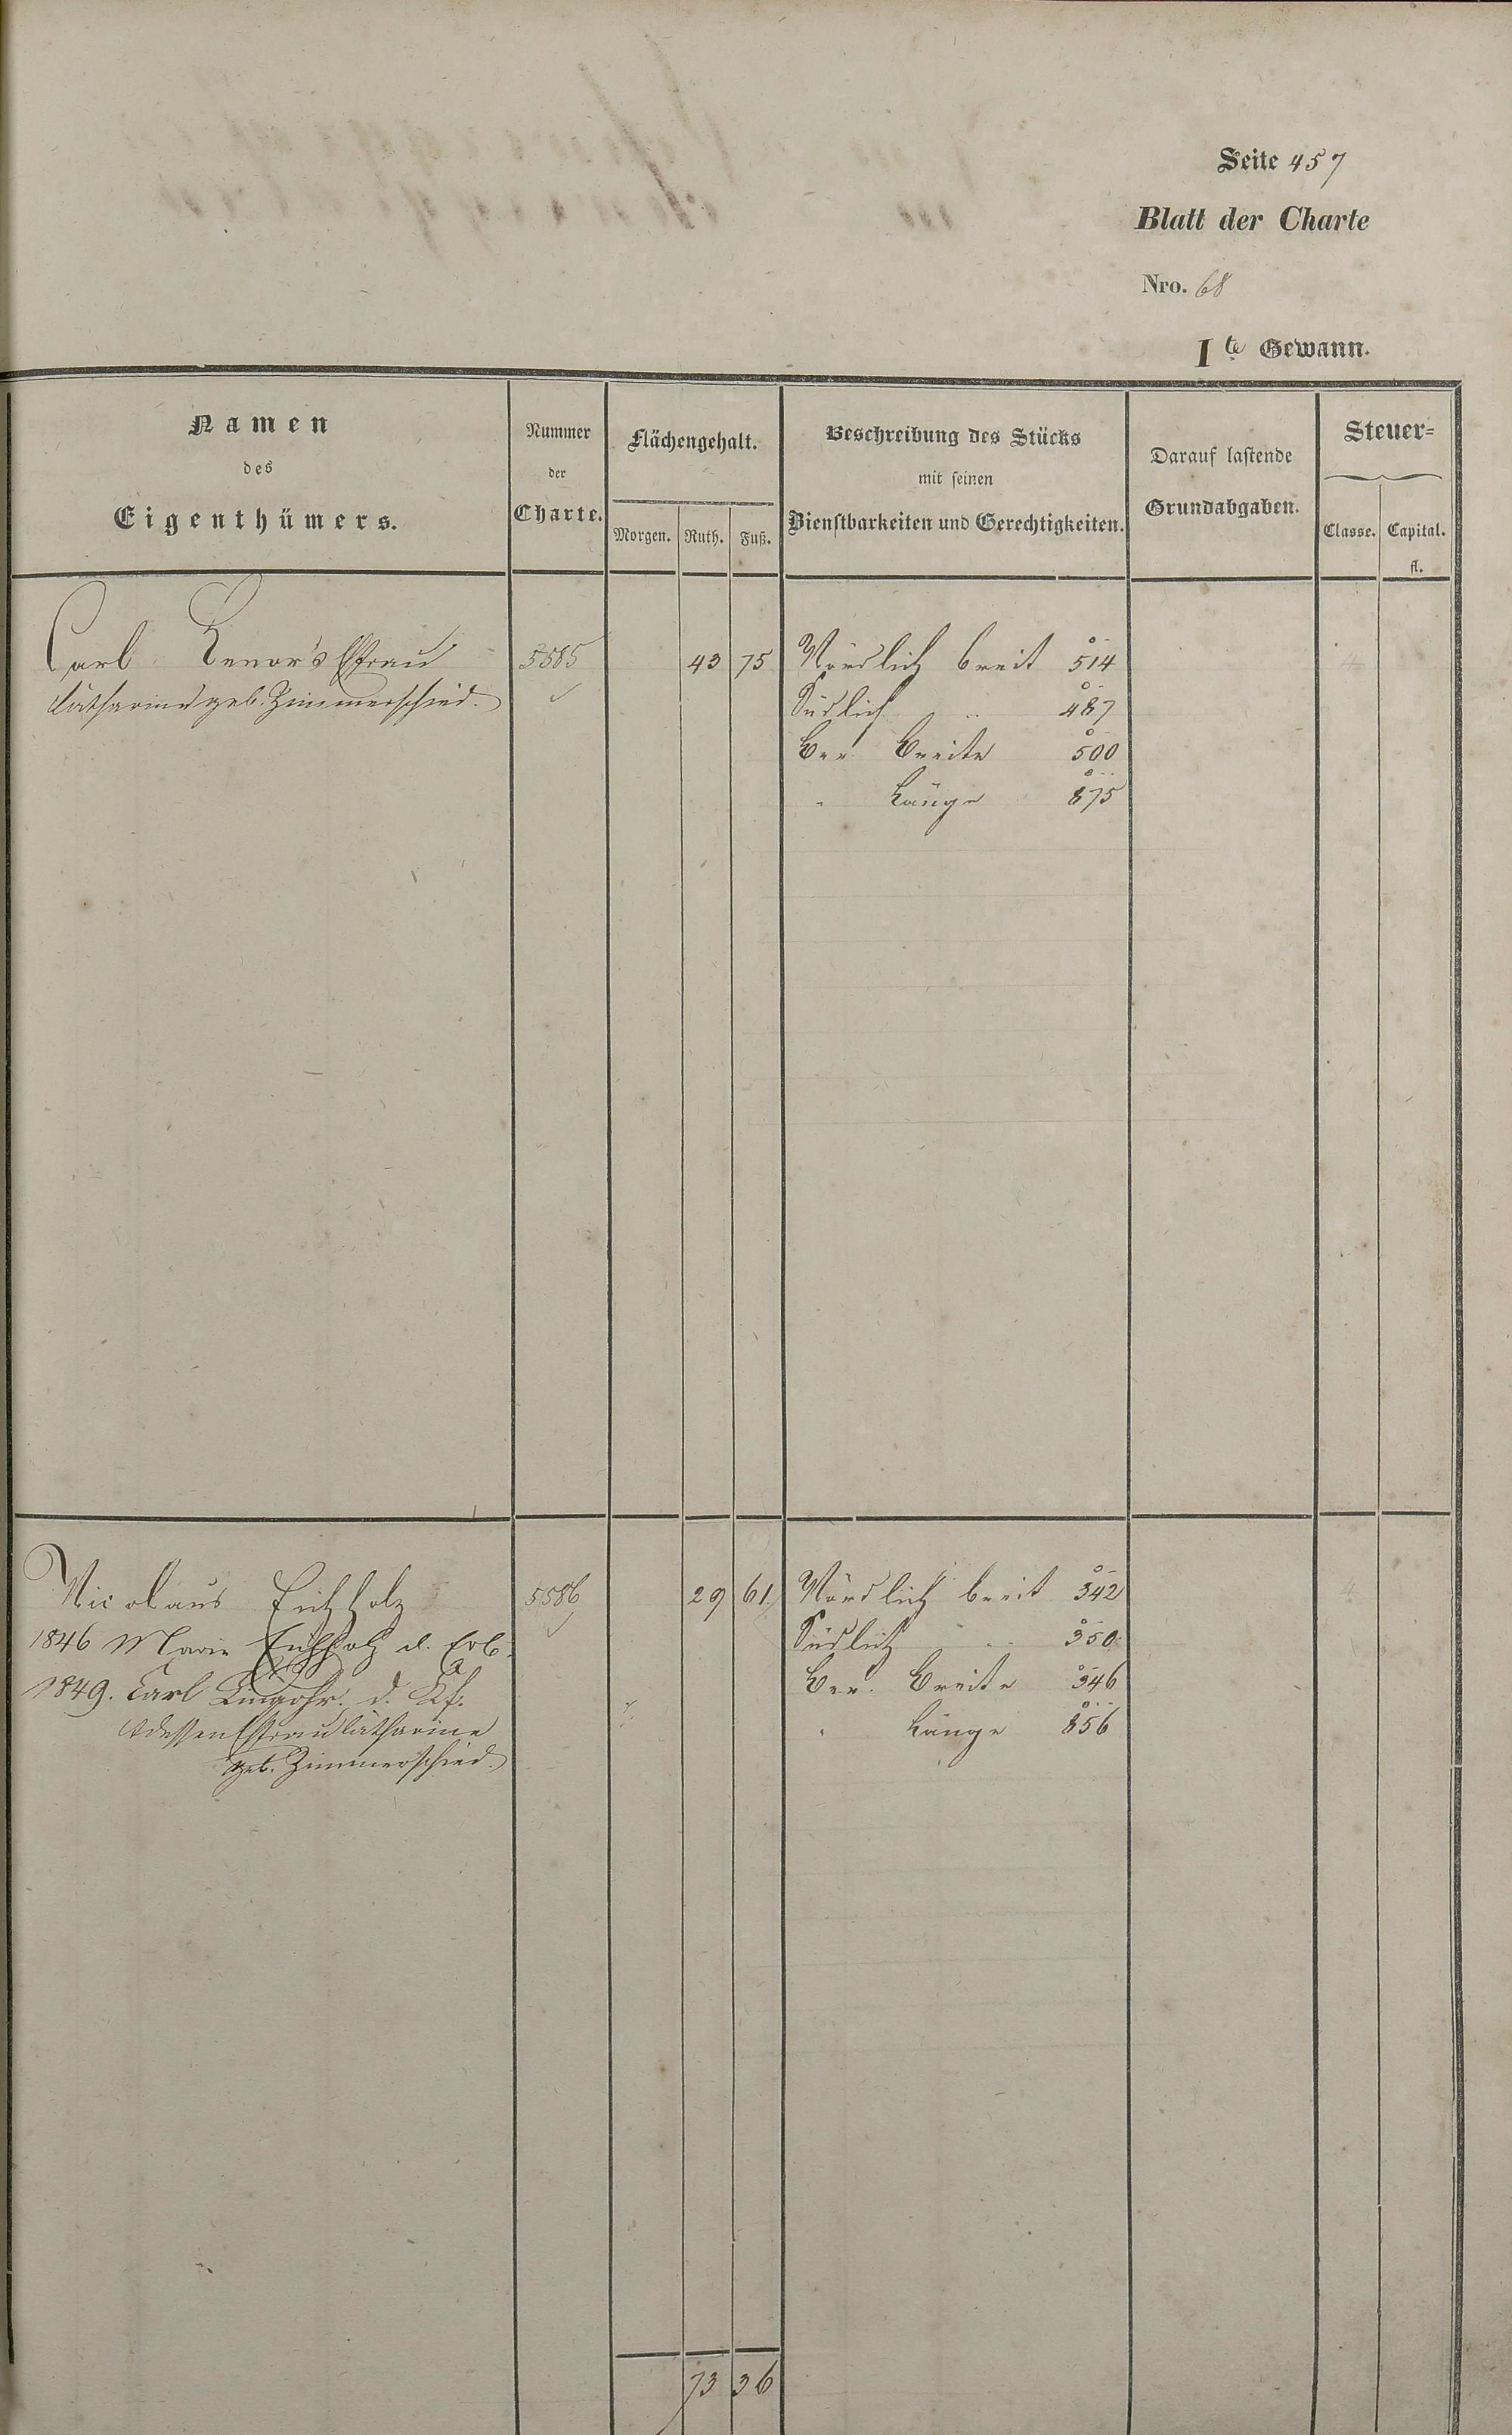 Seite 457
Blatt der Charte
Nro. 68
Ite Gewann.
Namen des Eigenthümers.
Nummer der Charte.
Flächengehalt.
Morgen. Ruth. Fuß.
Beschreibung des Stücks mit seinen Dienstbarkeiten und Gerechtigkeiten.
Darauf lastende Grundabgaben.
Steuer=
Classe. Capital. fl.
Carl Ehfrau 5585 43 75 Nördlich breit 514
Catharine geb. Zimmerschied. Südlich " 487
Ber. Breite 500
" Länge 875
Nicolaus Eichholz 5586 29 61 Nördlich breit 342
1846 Marie Eichholz d. Erb. Südlich " 350
1849. Carl d. Kf. Ber. Breite 346
dessen Ehfrau Catharine " Länge 856
geb. Zimmerschied.
73 36